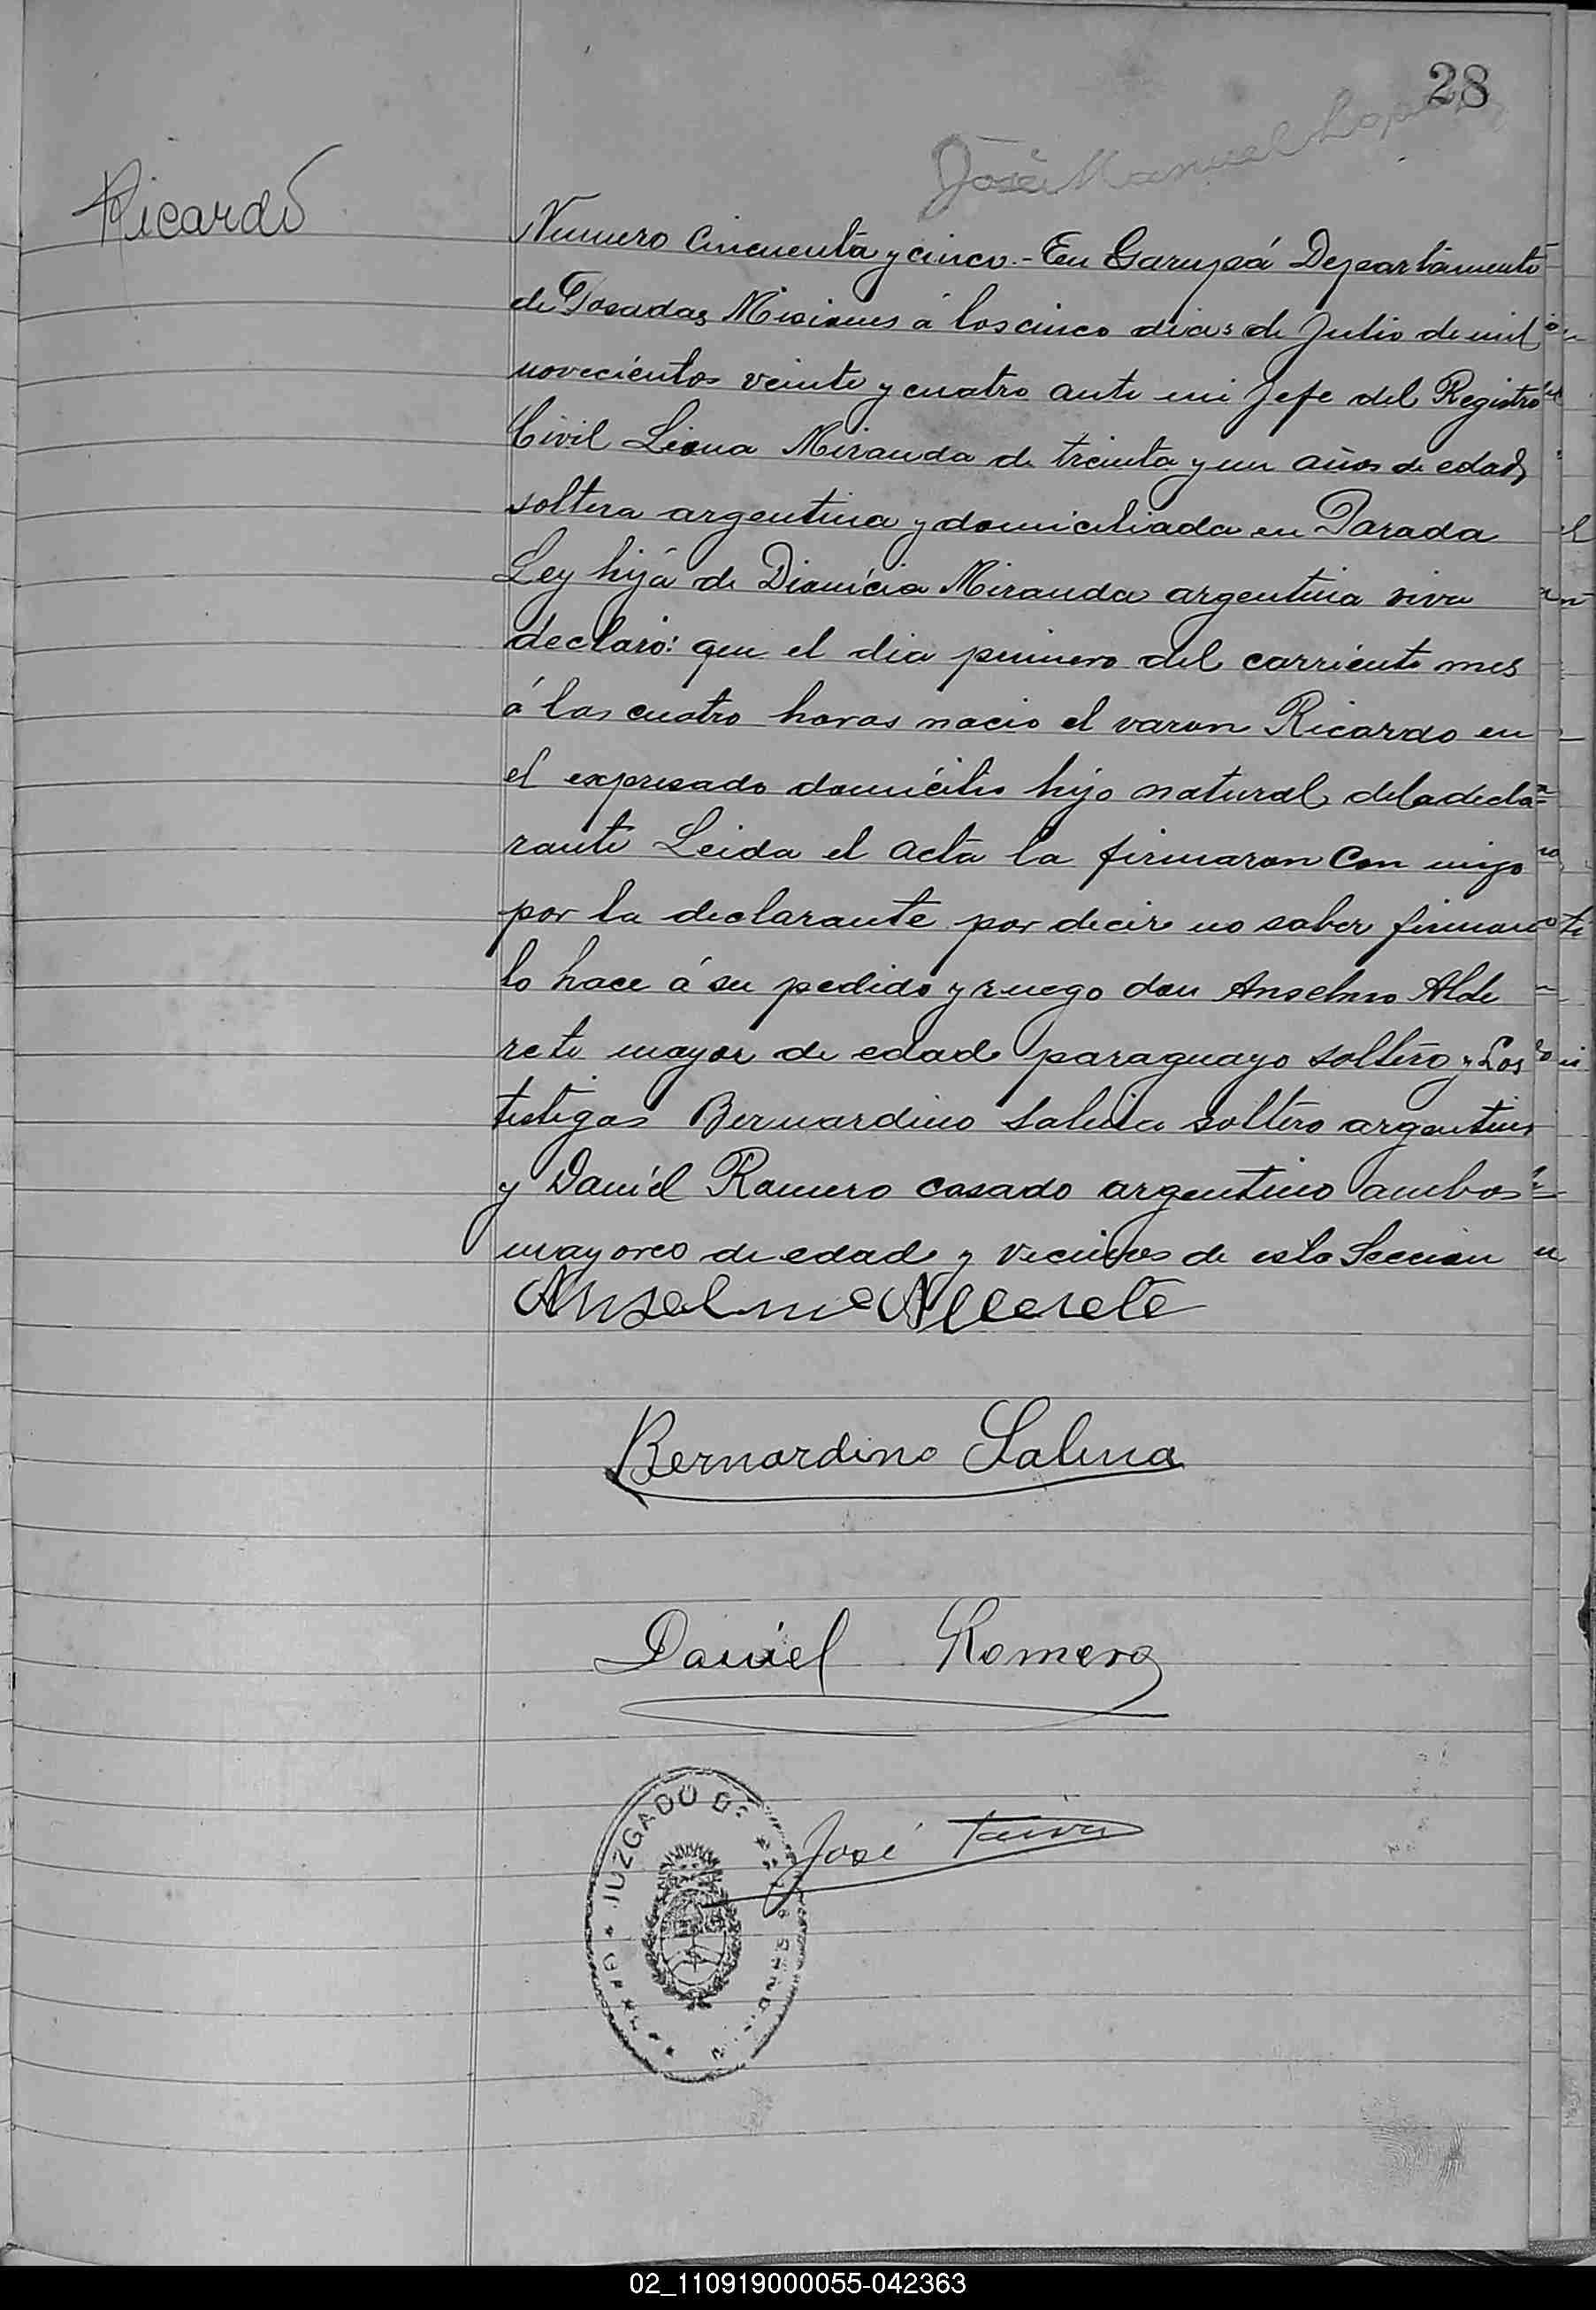 28
José Manuel Lopez
Ricardo
Numero Cincuenta y cinco.- En Garupá Departamento
de Posadas Misiones á los cinco dias de Julio de mil
novecientos veinte y cuatro ante mi Jefe del Registro
Civil Liona Miranda de treinta y un años de edad
soltera argentina y domiciliada en Parada
Ley hija de Dionicia Miranda argentina viva
declaró: que el dia primero del corriente mes
á las cuatro horas nacio el varon Ricardo en
el expresado domicilio hijo natural de la decla
rante Leida el acta la firmaron Con migo
por la declarante por decir no saber firmar
lo hace á su pedido y ruego don Anselmo Alde
rete mayor de edad paraguayo soltero y Los
testigos Bernardino Salina soltero argentino
y Daniel Romero casado argentino ambos
mayores de edad y vecinos de esta Seccion
Anselmo
Bernardino Salina
Daniel Romero
José
JUZGADO DE
02_110919000055-042363